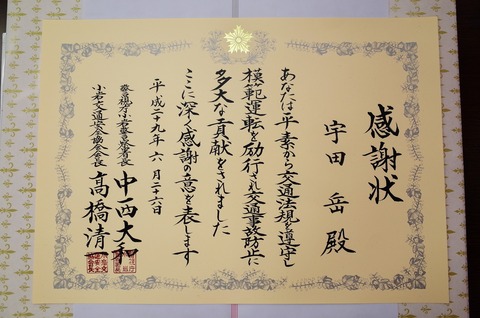 感謝状
宇田 岳 殿
あなたは平素から交通法規を遵守し
模範運転を励行され交通事故防止に
多大な貢献をされました
ここに深く感謝の意を表します
平成二十九年六月二十六日
警視庁小岩警察署長 中西大和
小岩交通安全協会会長 高橋清一